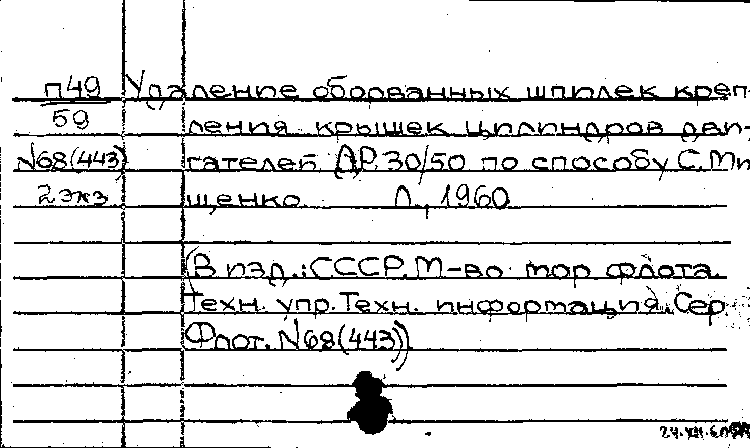 п49 Удаление оборванных шпилек креп-
59 ления крышек цилиндров дви-
N68(443) гателей ДР 30/50 по способу С. Ми
2 экз щенко. Л., 1960
(В изд.: СССР. М-во мор флота.
Техн. упр. Техн. информация. Сер
Флот. N68(443))
24.XII.60